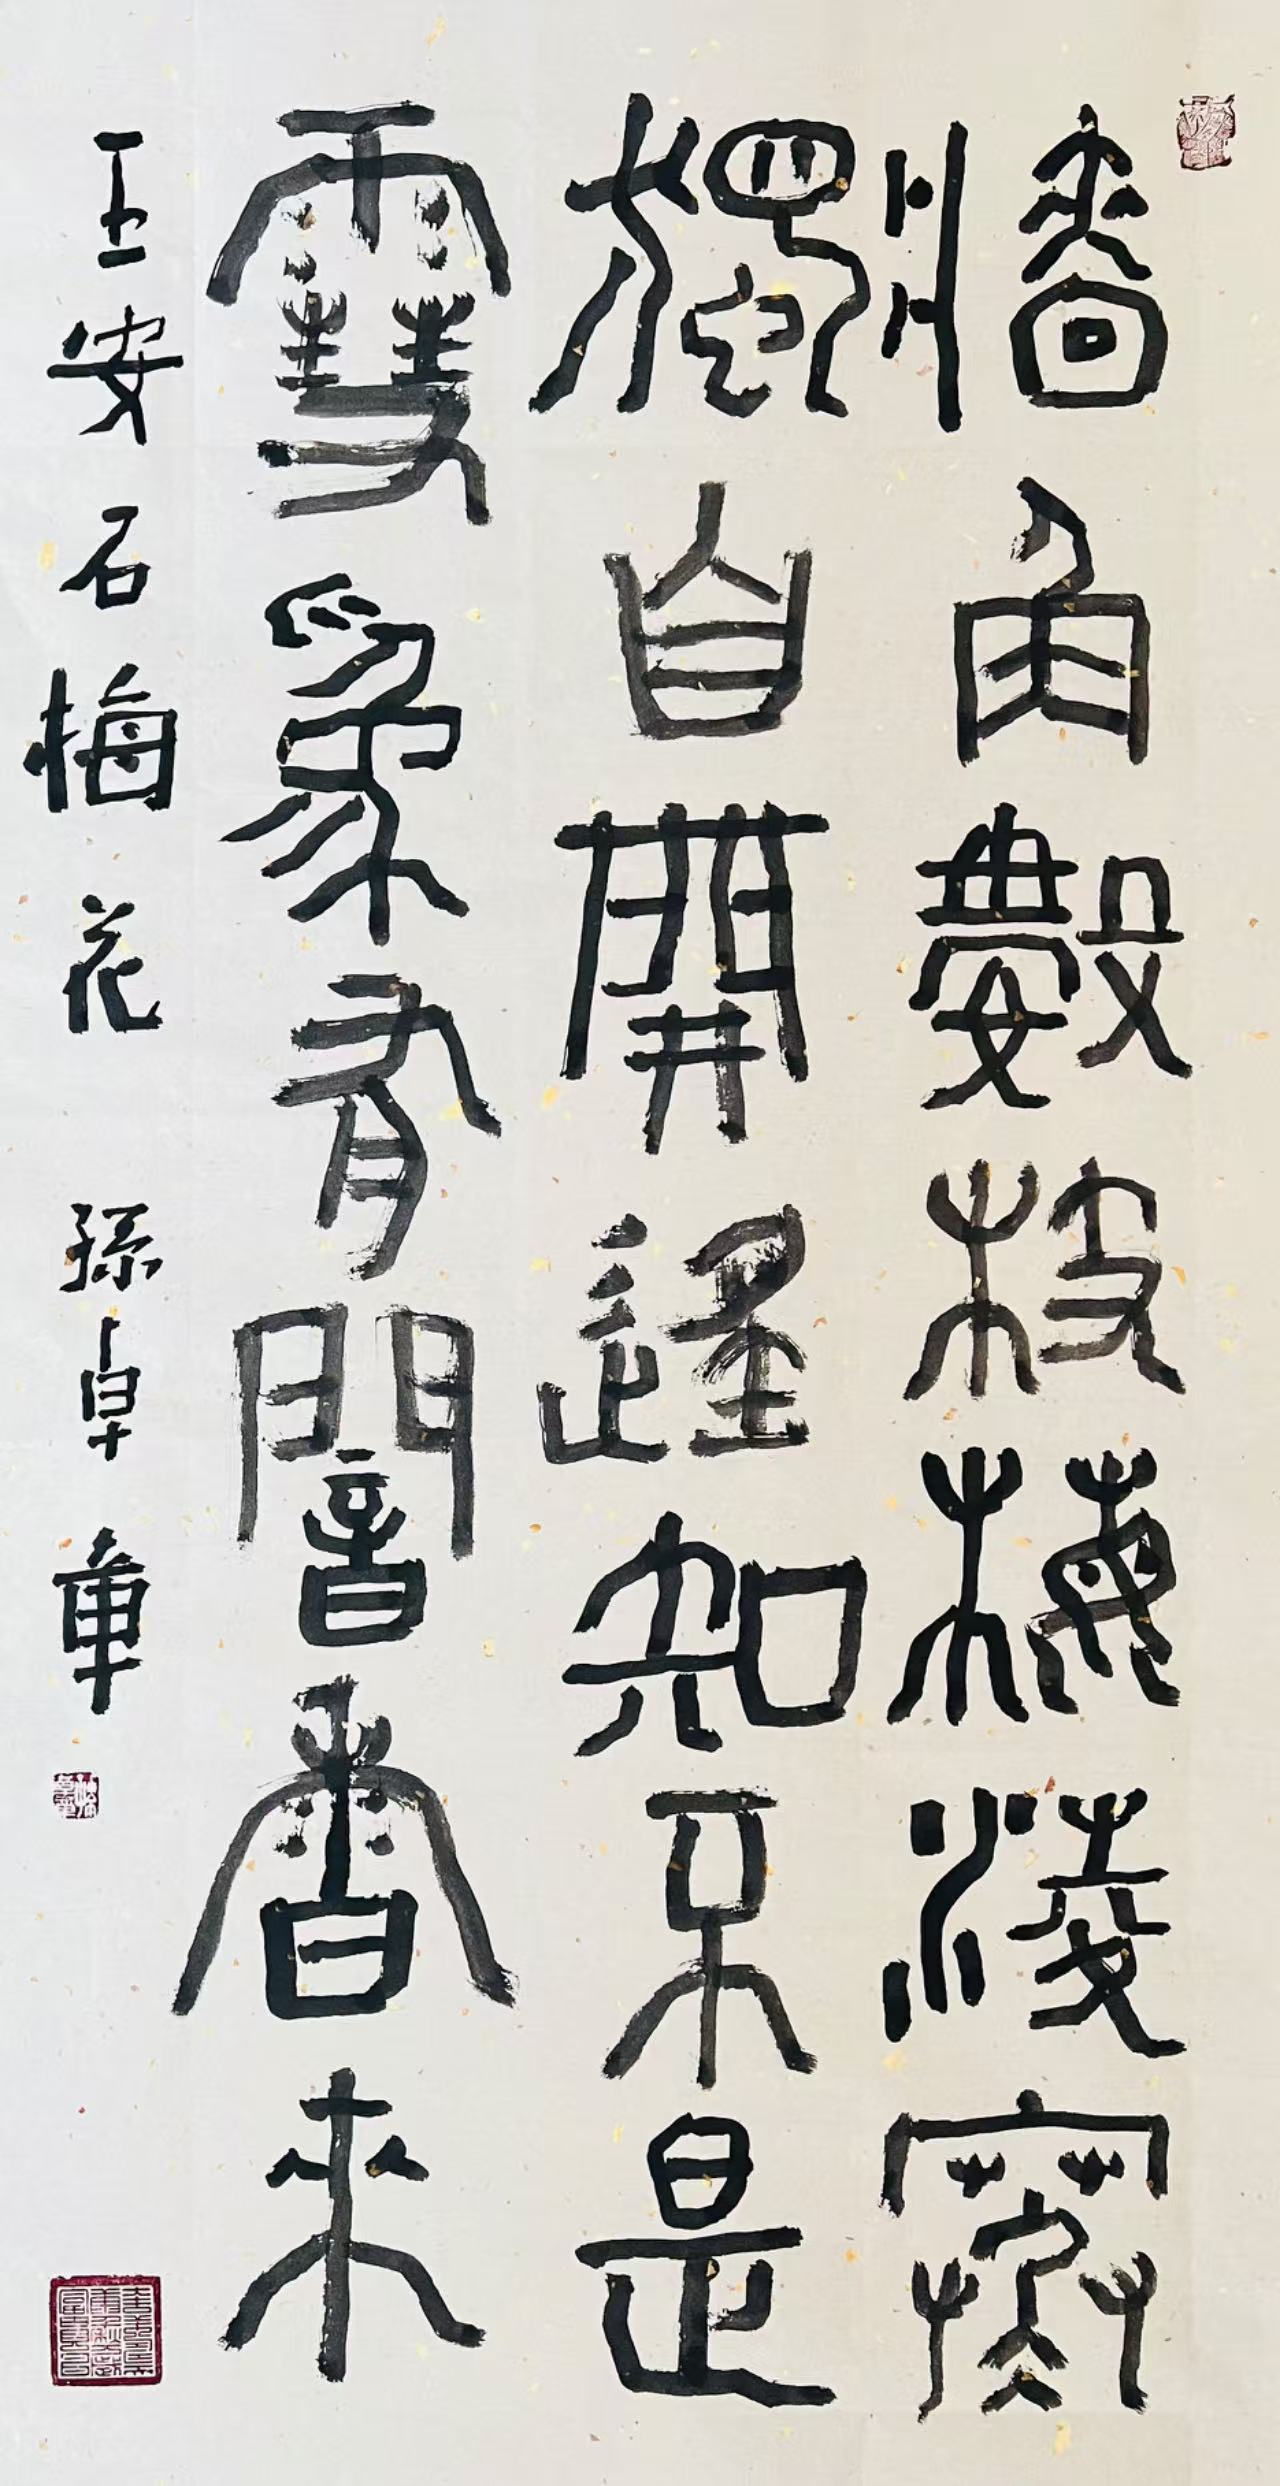 牆角數枝梅淩寒
獨自開遙知不是
雪為有闇香來
王安石梅花 孫卓章